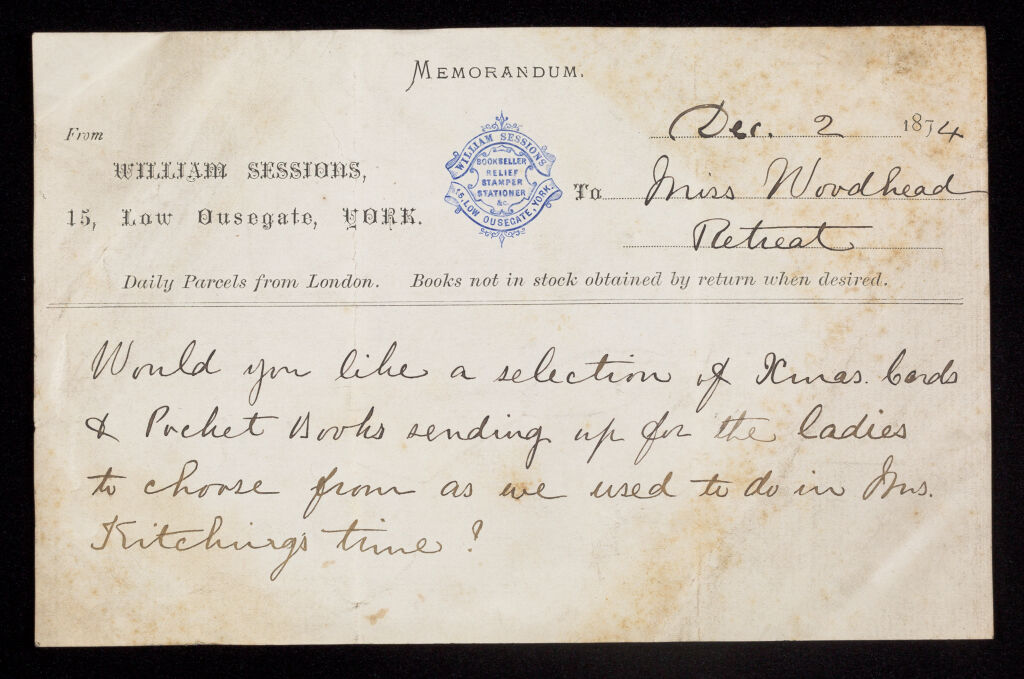 MEMORANDUM.
From
WILLIAM SESSIONS,
15, Low Ousegate, YORK.
WILLIAM SESSIONS
BOOKSELLER
RELIEF
STAMPER
STATIONER
&C.
15, LOW OUSEGATE, YORK.
Dec. 2 1874
To Miss Woodhead
Retreat
Daily Parcels from London. Books not in stock obtained by return when desired.
Would you like a selection of Xmas. Cards
& Pocket Books sending up for the ladies
to choose from as we used to do in Mrs.
Kitching's time?